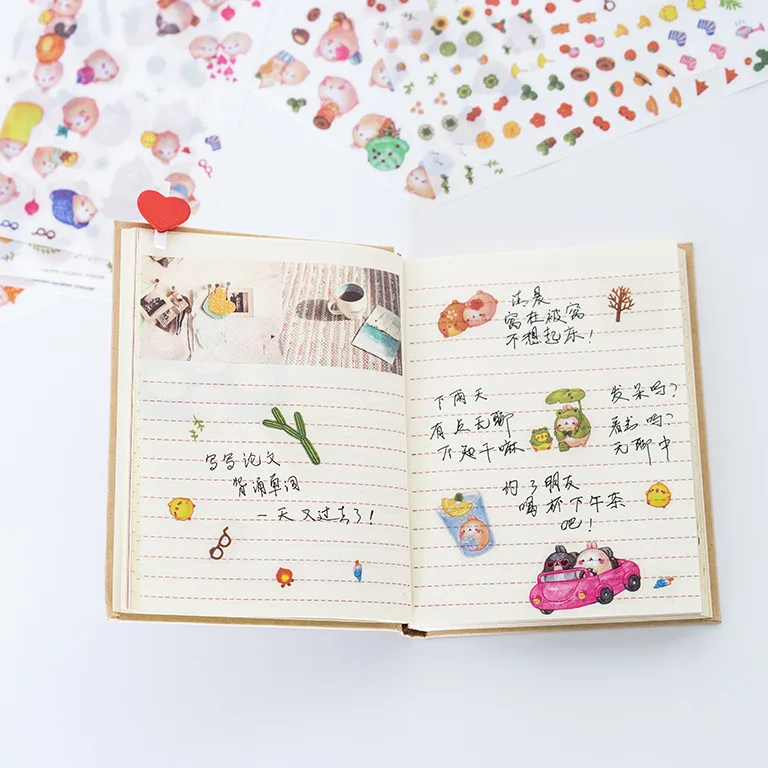 写写论文
背诵单词
一天又过去了!
清晨
窝在被窝
不想起床!
下雨天
有点无聊
不知干嘛
发呆吗?
看书吗?
无聊中
约了朋友
喝杯下午茶
吧!